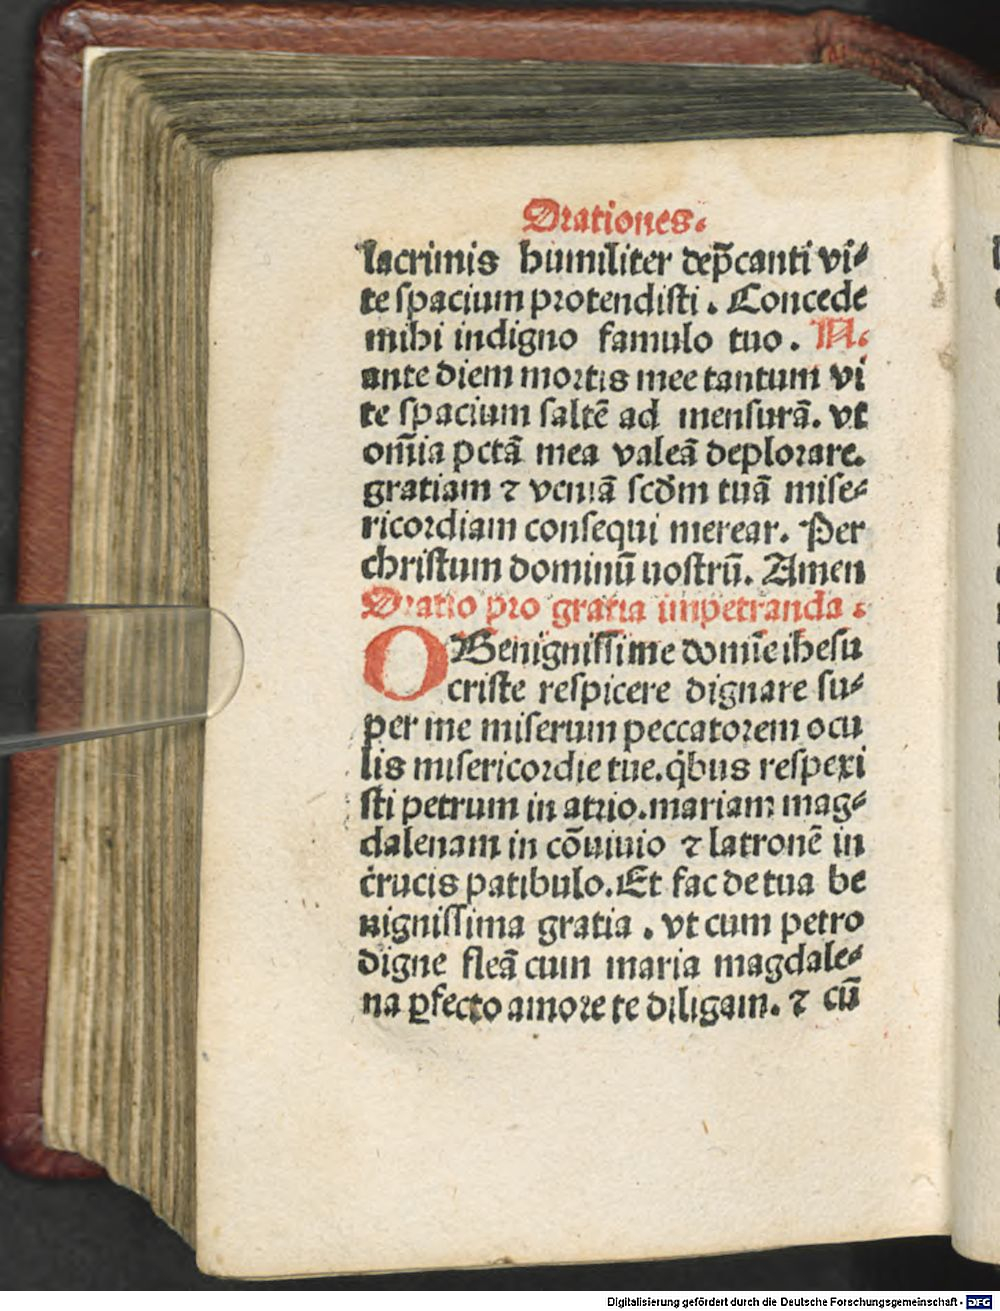 Orationes.
lacrimis humiliter dep̄canti vi⸗
te spacium protendisti. Concede
mihi indigno famulo tuo. N.
ante diem mortis mee tantum vi
te spacium saltē ad mensurā. vt
om̄ia pctā mea valeā deplorare.
gratiam ⁊ veniā scdm̄ tuā mise⸗
ricordiam consequi merear. Per
christum dominū nostrū. Amen
Oratio pro gratia impetranda.
O Benignissime domīe ihesu
criste respicere dignare su⸗
per me miserum peccatorem ocu
lis misericordie tue. q̇bus respexi
sti petrum in atrio. mariam mag⸗
dalenam in cōuiuio ⁊ latronē in
crucis patibulo. Et fac de tua be
nignissima gratia. vt cum petro
digne fleā cum maria magdale⸗
na ꝑfecto amore te diligam. ⁊ cū
Digitalisierung gefördert durch die Deutsche Forschungsgemeinschaft - DFG